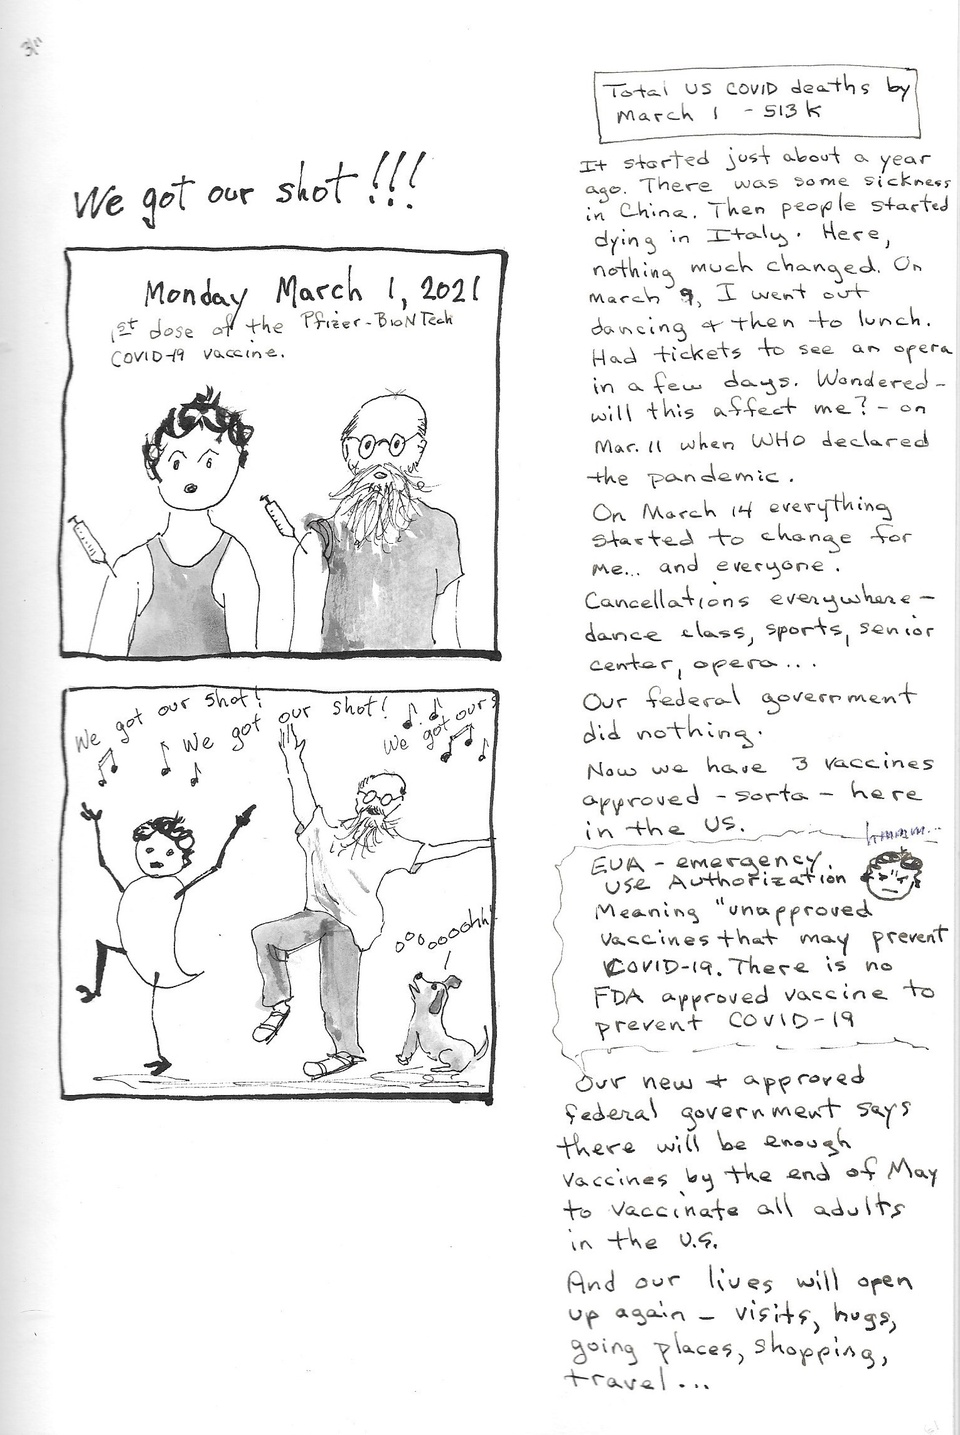 3/1
We got our shot!!!
Monday March 1, 2021
1st dose of the Pfizer-BioNTech
COVID-19 vaccine.
We got our shot!
We got our shot!
We got ours
oooooooohh!
Total US COVID deaths by
March 1 - 513K
It started just about a year
ago. There was some sickness
in China. Then people started
dying in Italy. Here,
nothing much changed. On
March 9, I went out
dancing & then to lunch.
Had tickets to see an opera
in a few days. Wondered -
will this affect me? - on
Mar. 11 when WHO declared
the pandemic.
On March 14 everything
started to change for
me... and everyone.
Cancellations everywhere -
dance class, sports, senior
center, opera...
Our federal government
did nothing.
Now we have 3 vaccines
approved - sorta - here
in the US.
hmmm...
EUA - emergency
Use Authorization
Meaning "unapproved
vaccines that may prevent
COVID-19. There is no
FDA approved vaccine to
prevent COVID-19
Our new & approved
federal government says
there will be enough
vaccines by the end of May
to vaccinate all adults
in the U.S.
And our lives will open
up again - visits, hugs,
going places, shopping,
travel...